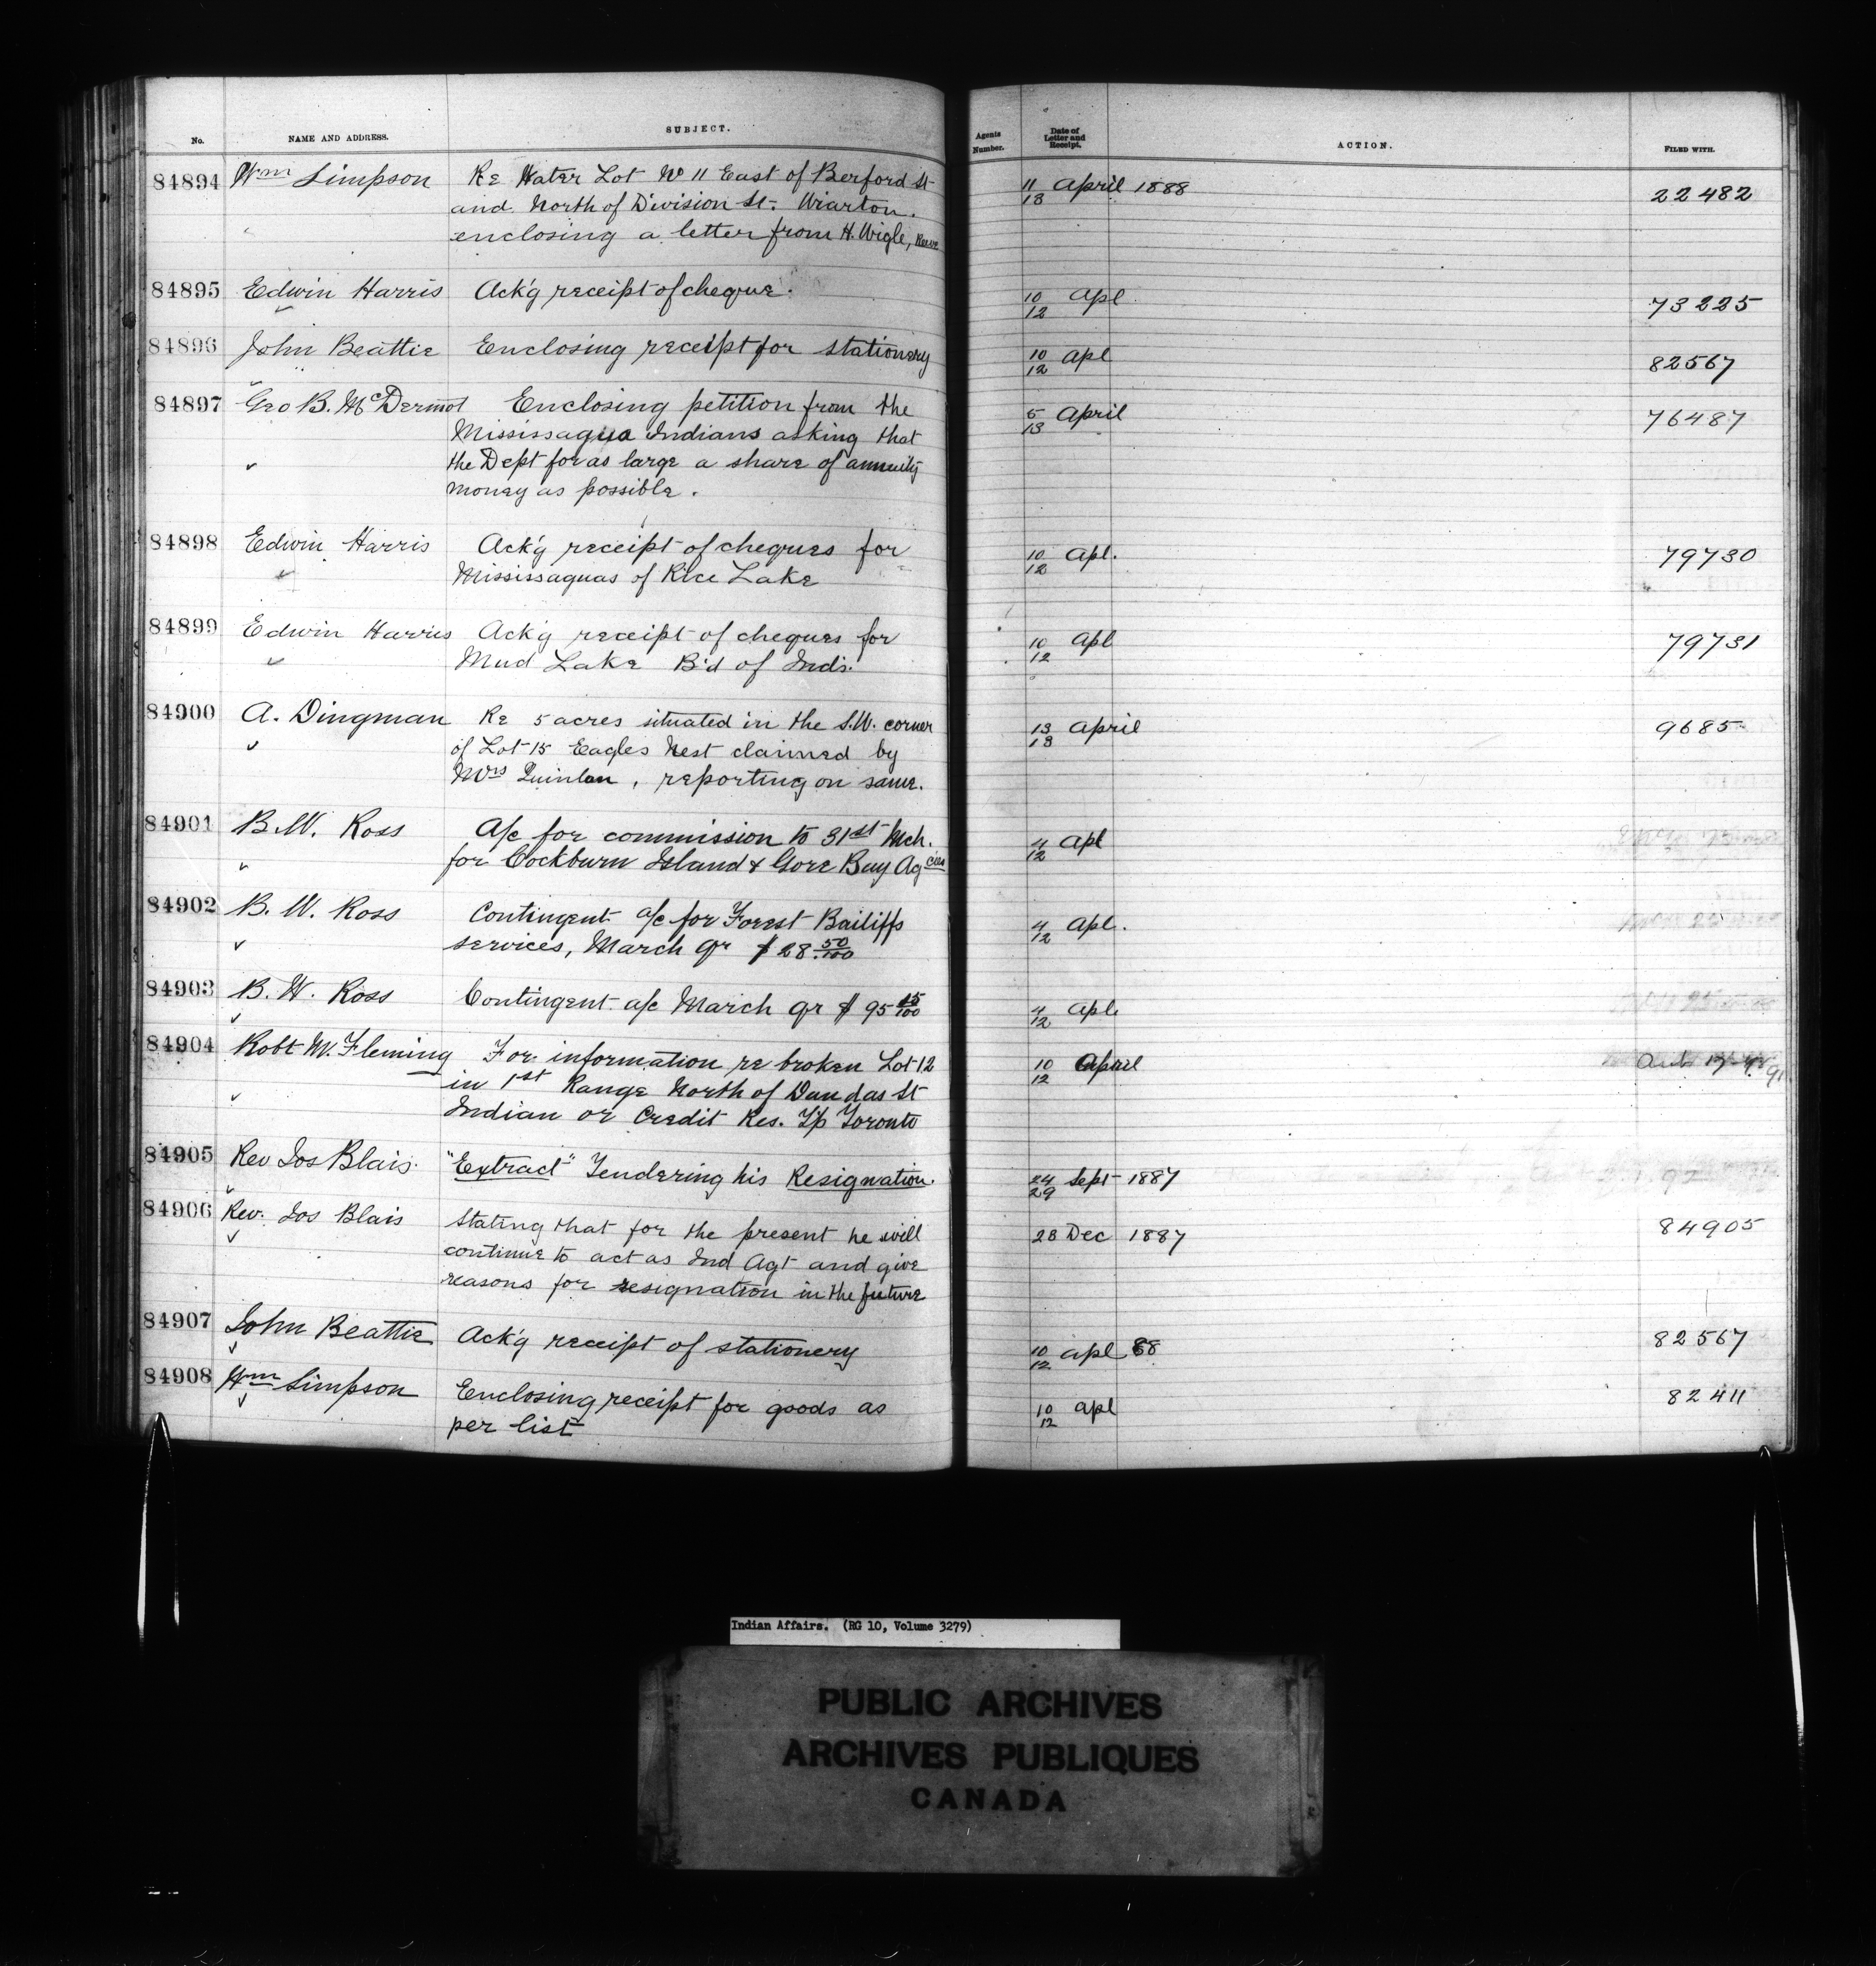 No. NAME AND ADDRESS. SUBJECT. Agents Number. Date of Letter and Receipt. ACTION. FILED WITH.
84894 Wm Simpson Re Water Lot No 11 East of Berford St 11/13 April 1888 22482
and North of Division St. Wiarton.
enclosing a letter from H. Wigle, Reeve
84895 Edwin Harris Ack'g receipt of cheque. 10/12 Apl 73225
84896 John Beattie Enclosing receipt for stationery 10/12 Apl 82567
84897 Geo B. McDermot Enclosing petition from the 5/13 April 76487
Mississagua Indians asking that
the Dept for as large a share of annuity
money as possible.
84898 Edwin Harris Ack'g receipt of cheques for 10/12 Apl. 79730
Mississaguas of Rice Lake
84899 Edwin Harris Ack'g receipt of cheques for 10/12 Apl 79731
Mud Lake B'd of Inds.
84900 A. Dingman Re 5 acres situated in the S.W. corner 13/13 April 9685
of Lot 15 Eagles Nest claimed by
Mrs Quinlan, reporting on same.
84901 B.W. Ross A/c for commission to 31st Mch. 4/12 Apl
for Cockburn Island & Gore Bay Agcies
84902 B. W. Ross Contingent a/c for Forest Bailiffs 4/12 Apl.
services, March qr $28.50/100
84903 B. W. Ross Contingent a/c March qr $95 15/100 4/12 Apl.
84904 Robt M. Fleming For information re broken Lot 12 10/12 April
in 1st Range North of Dundas St
Indian or Credit Res. T/p Toronto
84905 Rev Jos Blais. "Extract" Tendering his Resignation. 24/29 Sept 1887
84906 Rev. Jos Blais Stating that for the present he will 28 Dec 1887 84905
continue to act as Ind Agt and give
reasons for resignation in the future
84907 John Beattie Ack'g receipt of stationery 10/12 Apl 88 82567
84908 Wm Simpson Enclosing receipt for goods as 10/12 Apl 82411
per list
Indian Affairs. (RG 10, Volume 3279)
PUBLIC ARCHIVES
ARCHIVES PUBLIQUES
CANADA